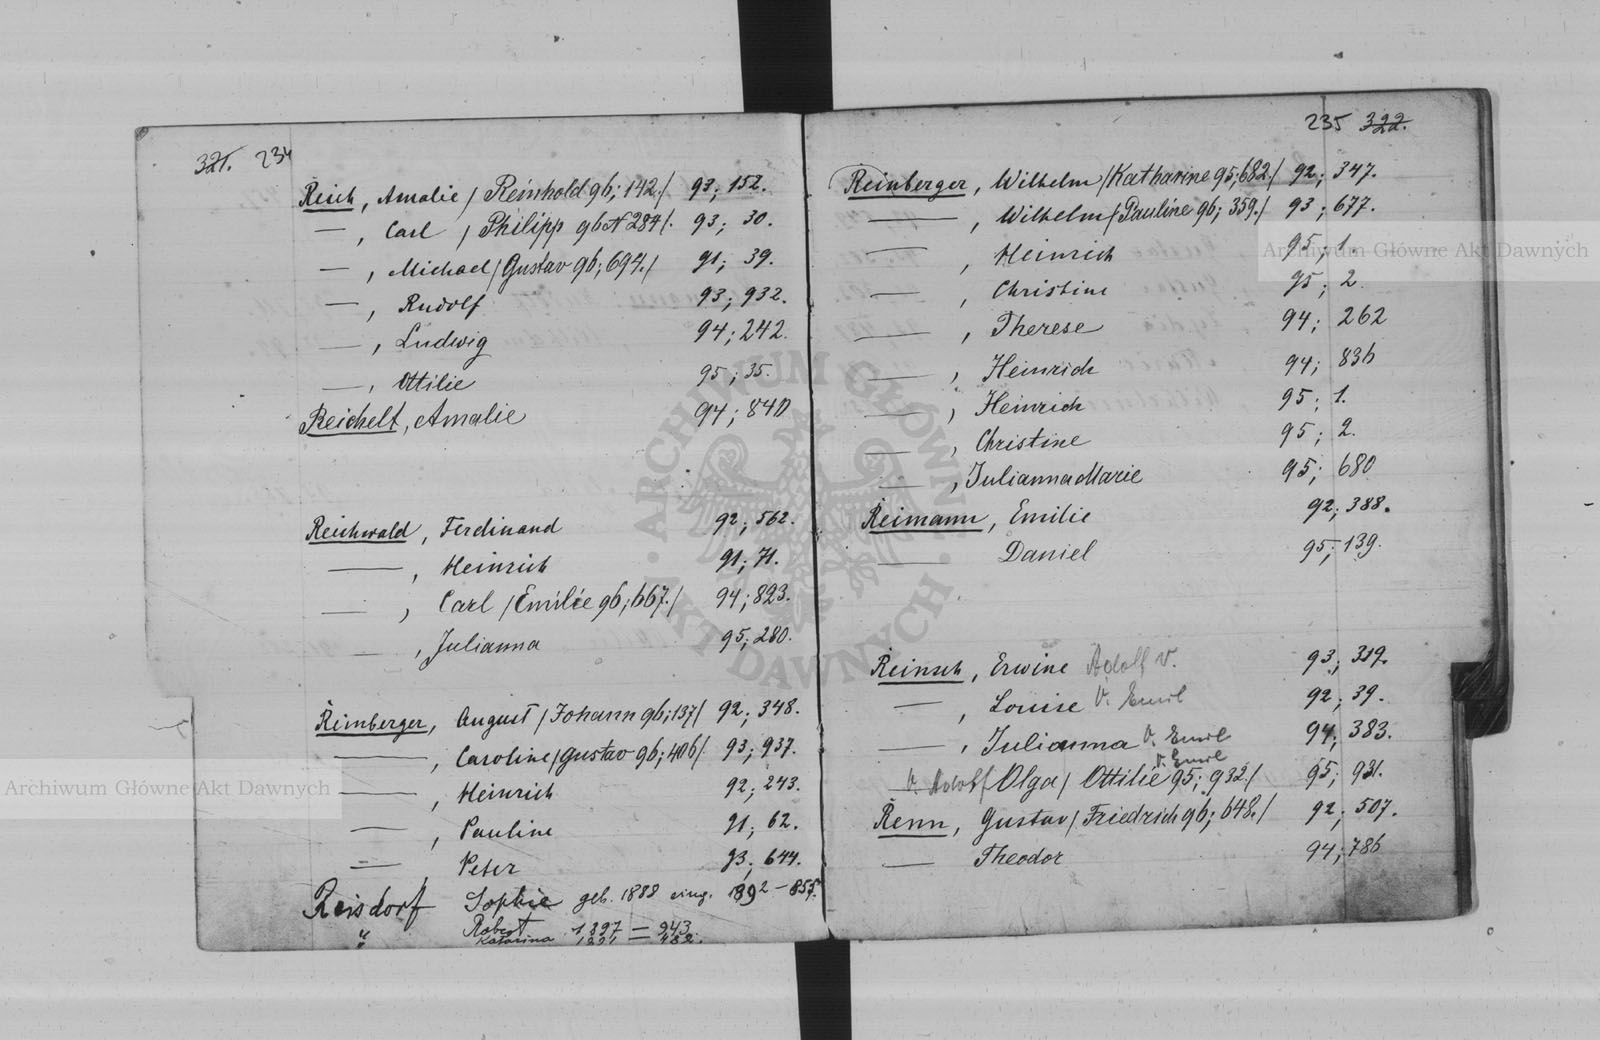 321. 234
Reich, Amalie / Reinhold 96; 142. / 93; 152.
— , Carl / Philipp 96 N 284 /. 93; 30.
— , Michael / Gustav 96; 694. / 91; 39.
— , Rudolf 93; 932.
— , Ludwig 94; 242.
— , Ottilie 95; 35.
Reichelt, Amalie 94; 840
Reichwald, Ferdinand 92; 562.
— , Heinrich 91; 71.
— , Carl / Emilie 96; 667. / 94; 823.
— , Julianna 95; 280.
Reinberger, August / Johann 96; 137 / 92; 348.
— , Caroline / Gustav 96; 406 /. 93; 937.
— , Heinrich 92; 243.
— , Pauline 91; 62.
— , Peter 93; 644.
Reisdorf Sophie geb. 1888 eing. 1892 – 855.
" Robert 1897 — 943.
" Katarina
235 322.
Reinberger, Wilhelm / Katharine 95; 682 / 92; 347.
— , Wilhelm / Pauline 96; 359. / 93; 677.
— , Heinrich 95; 1.
— , Christine 95; 2.
— , Therese 94; 262
— , Heinrich 94; 836
— , Heinrich 95; 1.
— , Christine 95; 2.
— , Julianna Marie 95; 680
Reimann, Emilie 92; 388.
— Daniel 95; 139.
Reinsch, Erwine Adolf V. 93; 319.
— , Louise V. Emil 92; 39.
— , Julianna V. Emil 94; 383.
V. Emil
V. Adolf Olga / Ottilie 95; 932. / 95; 931.
Renn, Gustav / Friedrich 96; 648. / 92; 507.
— Theodor 94; 786
Archiwum Główne Akt Dawnych
Archiwum Główne Akt Dawnych
ARCHIWUM GŁÓWNE AKT DAWNYCH